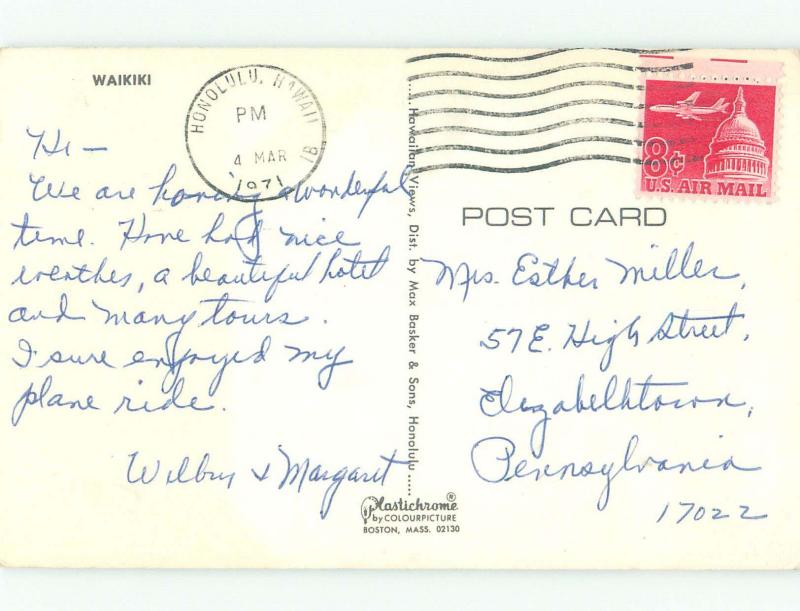 WAIKIKI
HONOLULU, HAWAII 1B
PM
4 MAR
1971
8¢
U.S. AIR MAIL
Hi —
We are having a wonderful
time. Have had nice
weather, a beautiful hotel
and many tours.
I sure enjoyed my
plane ride.
Wilbur & Margaret
..... Hawaiian Views, Dist. by Max Basker & Sons, Honolulu .....
POST CARD
Mrs. Esther Miller,
57 E. High Street,
Elizabethtown,
Pennsylvania
17022
Plastichrome®
by COLOURPICTURE
BOSTON, MASS. 02130